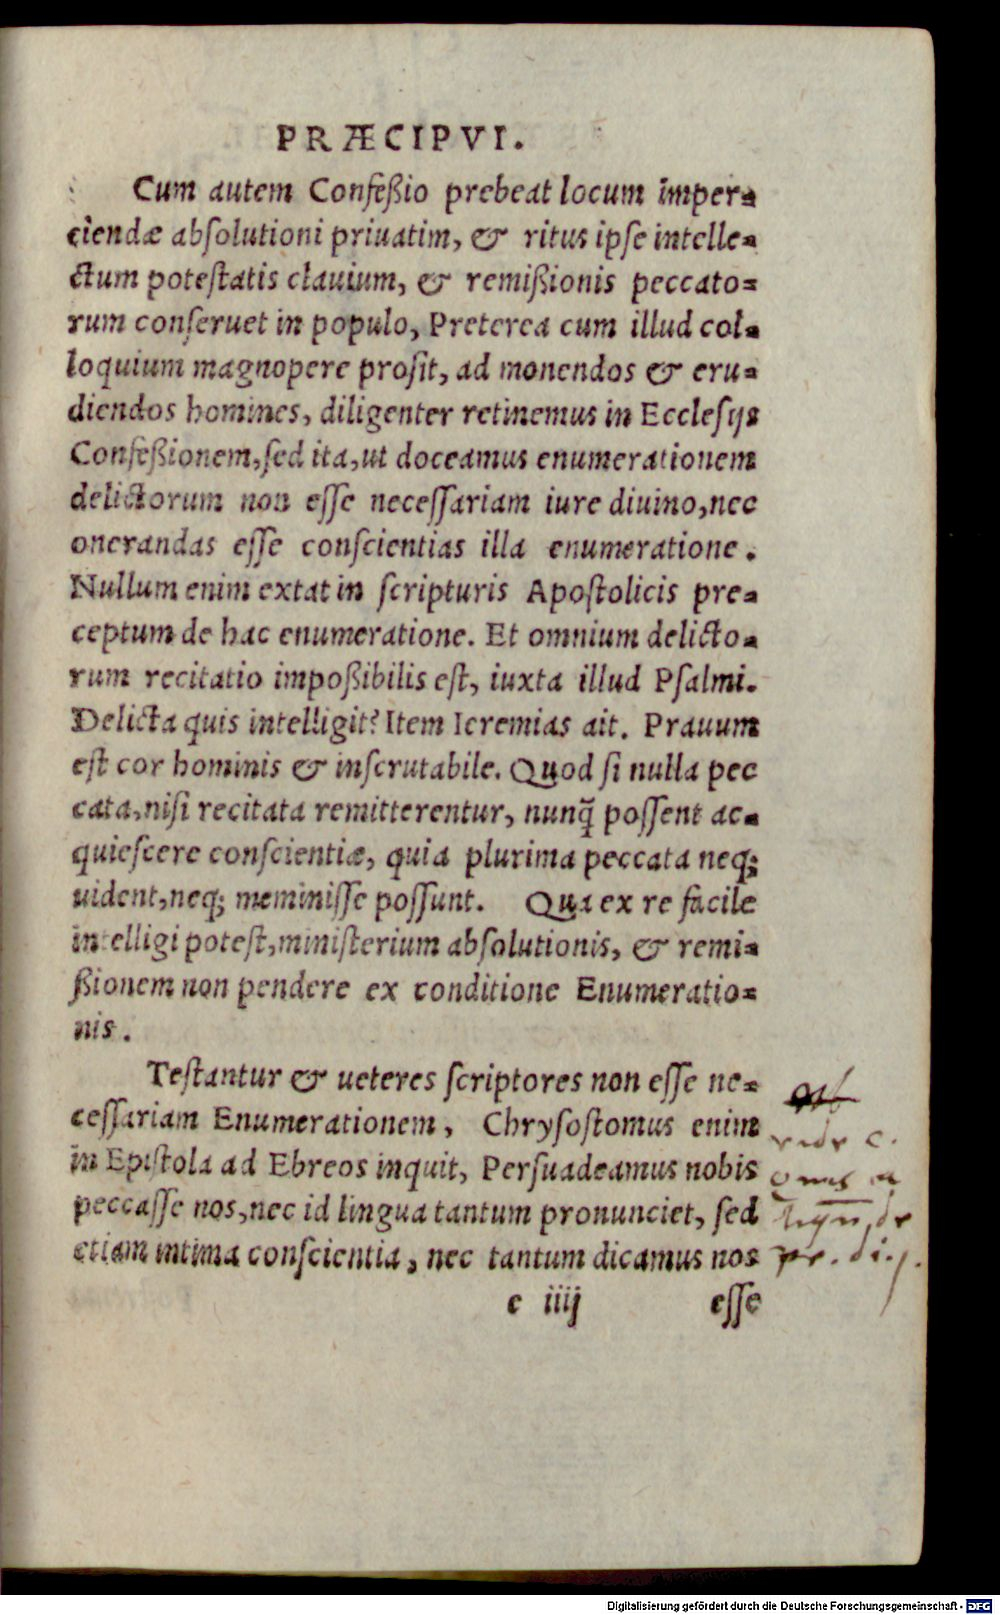 PRÆCIPVI.
Cum autem Confeßio prebeat locum imper⸗
ciendæ abſolutioni priuatim, & ritus ipſe intelle⸗
ctum poteſtatis clauium, & remißionis peccato⸗
rum conſeruet in populo, Preterea cum illud col⸗
loquium magnopere proſit, ad monendos & eru⸗
diendos homines, diligenter retinemus in Eccleſijs
Confeßionem,ſed ita,ut doceamus enumerationem
delictorum non eſſe neceſſariam iure diuino,nec
onerandas eſſe conſcientias illa enumeratione.
Nullum enim extat in ſcripturis Apoſtolicis pre⸗
ceptum de hac enumeratione. Et omnium delicto⸗
rum recitatio impoßibilis eſt, iuxta illud Pſalmi.
Delicta quis intelligit? Item Ieremias ait. Prauum
eſt cor hominis & inſcrutabile. Quod ſi nulla pec
cata,niſi recitata remitterentur, nunq̃ poſſent ac⸗
quieſcere conſcientiæ, quia plurima peccata neq;
uident,neq; meminiſſe poſſunt. Qua ex re facile
intelligi poteſt,miniſterium abſolutionis, & remi⸗
ßionem non pendere ex conditione Enumeratio⸗
nis.
Teſtantur & ueteres ſcriptores non eſſe ne⸗
ceſſariam Enumerationem, Chryſoſtomus enim
in Epiſtola ad Ebreos inquit, Perſuadeamus nobis
peccaſſe nos,nec id lingua tantum pronunciet, ſed
etiam intima conſcientia, nec tantum dicamus nos
e iiij eſſe
vide c.
Digitalisierung gefördert durch die Deutsche Forschungsgemeinschaft - DFG